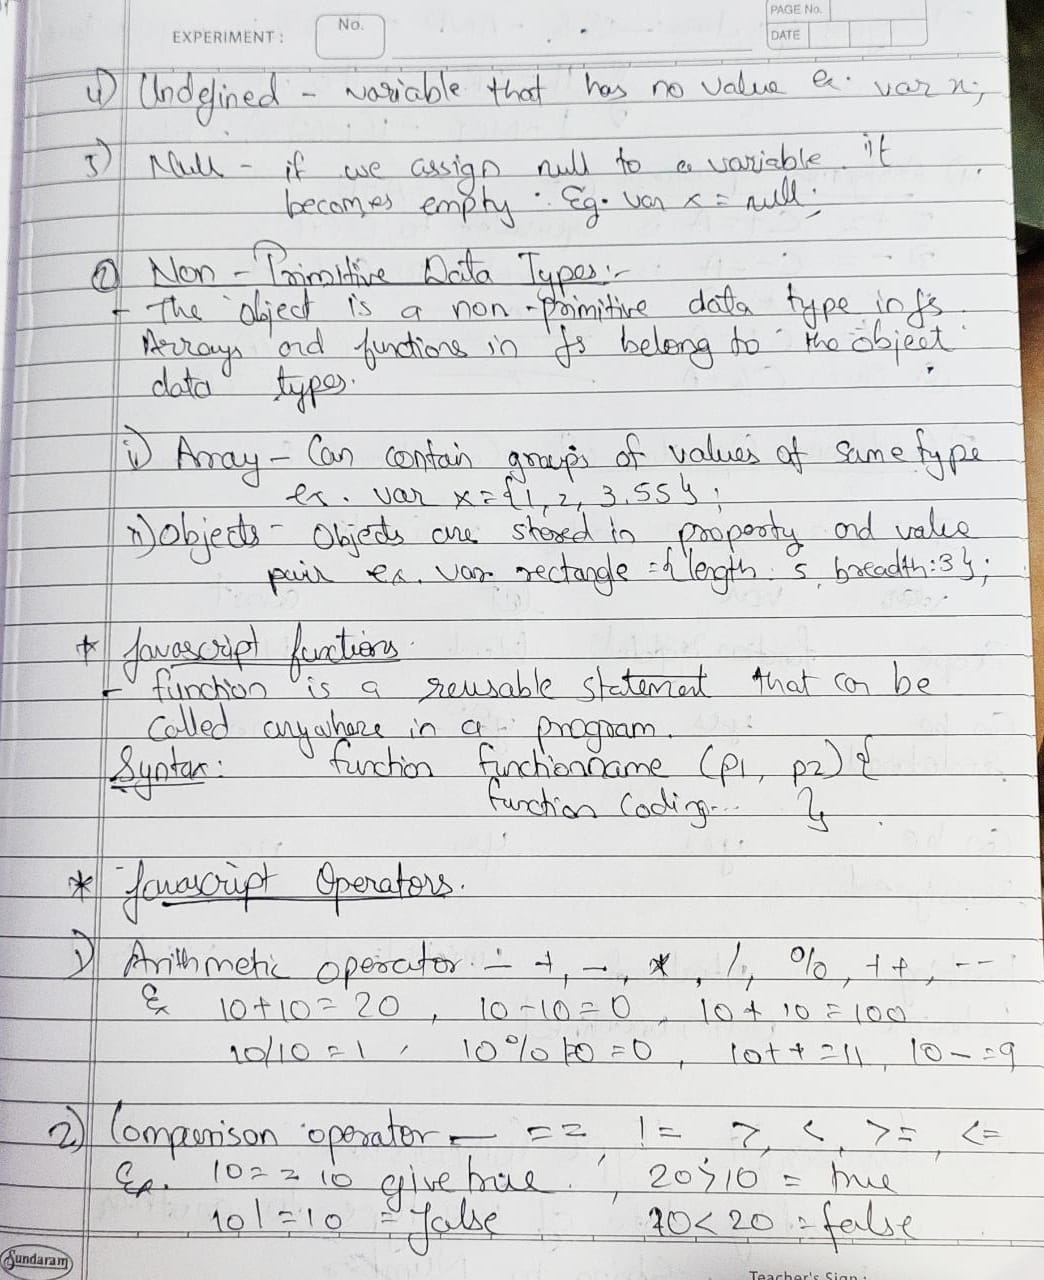 EXPERIMENT : No. PAGE No.
DATE
4) Undefined - variable that has no value ex. var x;
5) Null - if we assign null to a variable it
becomes empty. Eg. var x = null;
② Non - Primitive Data Types :-
- The object is a non - primitive data type in js.
Arrays and functions in js belong to the object
data types.
i) Array - Can contain groups of values of same type
ex. var x = {1, 2, 3.55};
ii) Objects - Objects are stored in property and value
pair ex. var rectangle = { length : 5, breadth : 3 };
* Javascript functions
- function is a reusable statement that can be
Called anywhere in a program.
Syntax : function functionname (p1, p2) {
function Coding... }
* Javascript Operators.
1) Arithmetic operator - +, -, *, /, %, ++, --
Ex 10+10 = 20, 10-10 = 0, 10 * 10 = 100
10/10 = 1, 10 % 10 = 0, 10++ = 11, 10-- = 9
2) Comparison operator - ==, !=, >, <, >=, <=
Ex. 10 == 10 give true, 20 > 10 = true
10 != 10 = false 20 < 20 = false
Sundaram
Teacher's Sign :